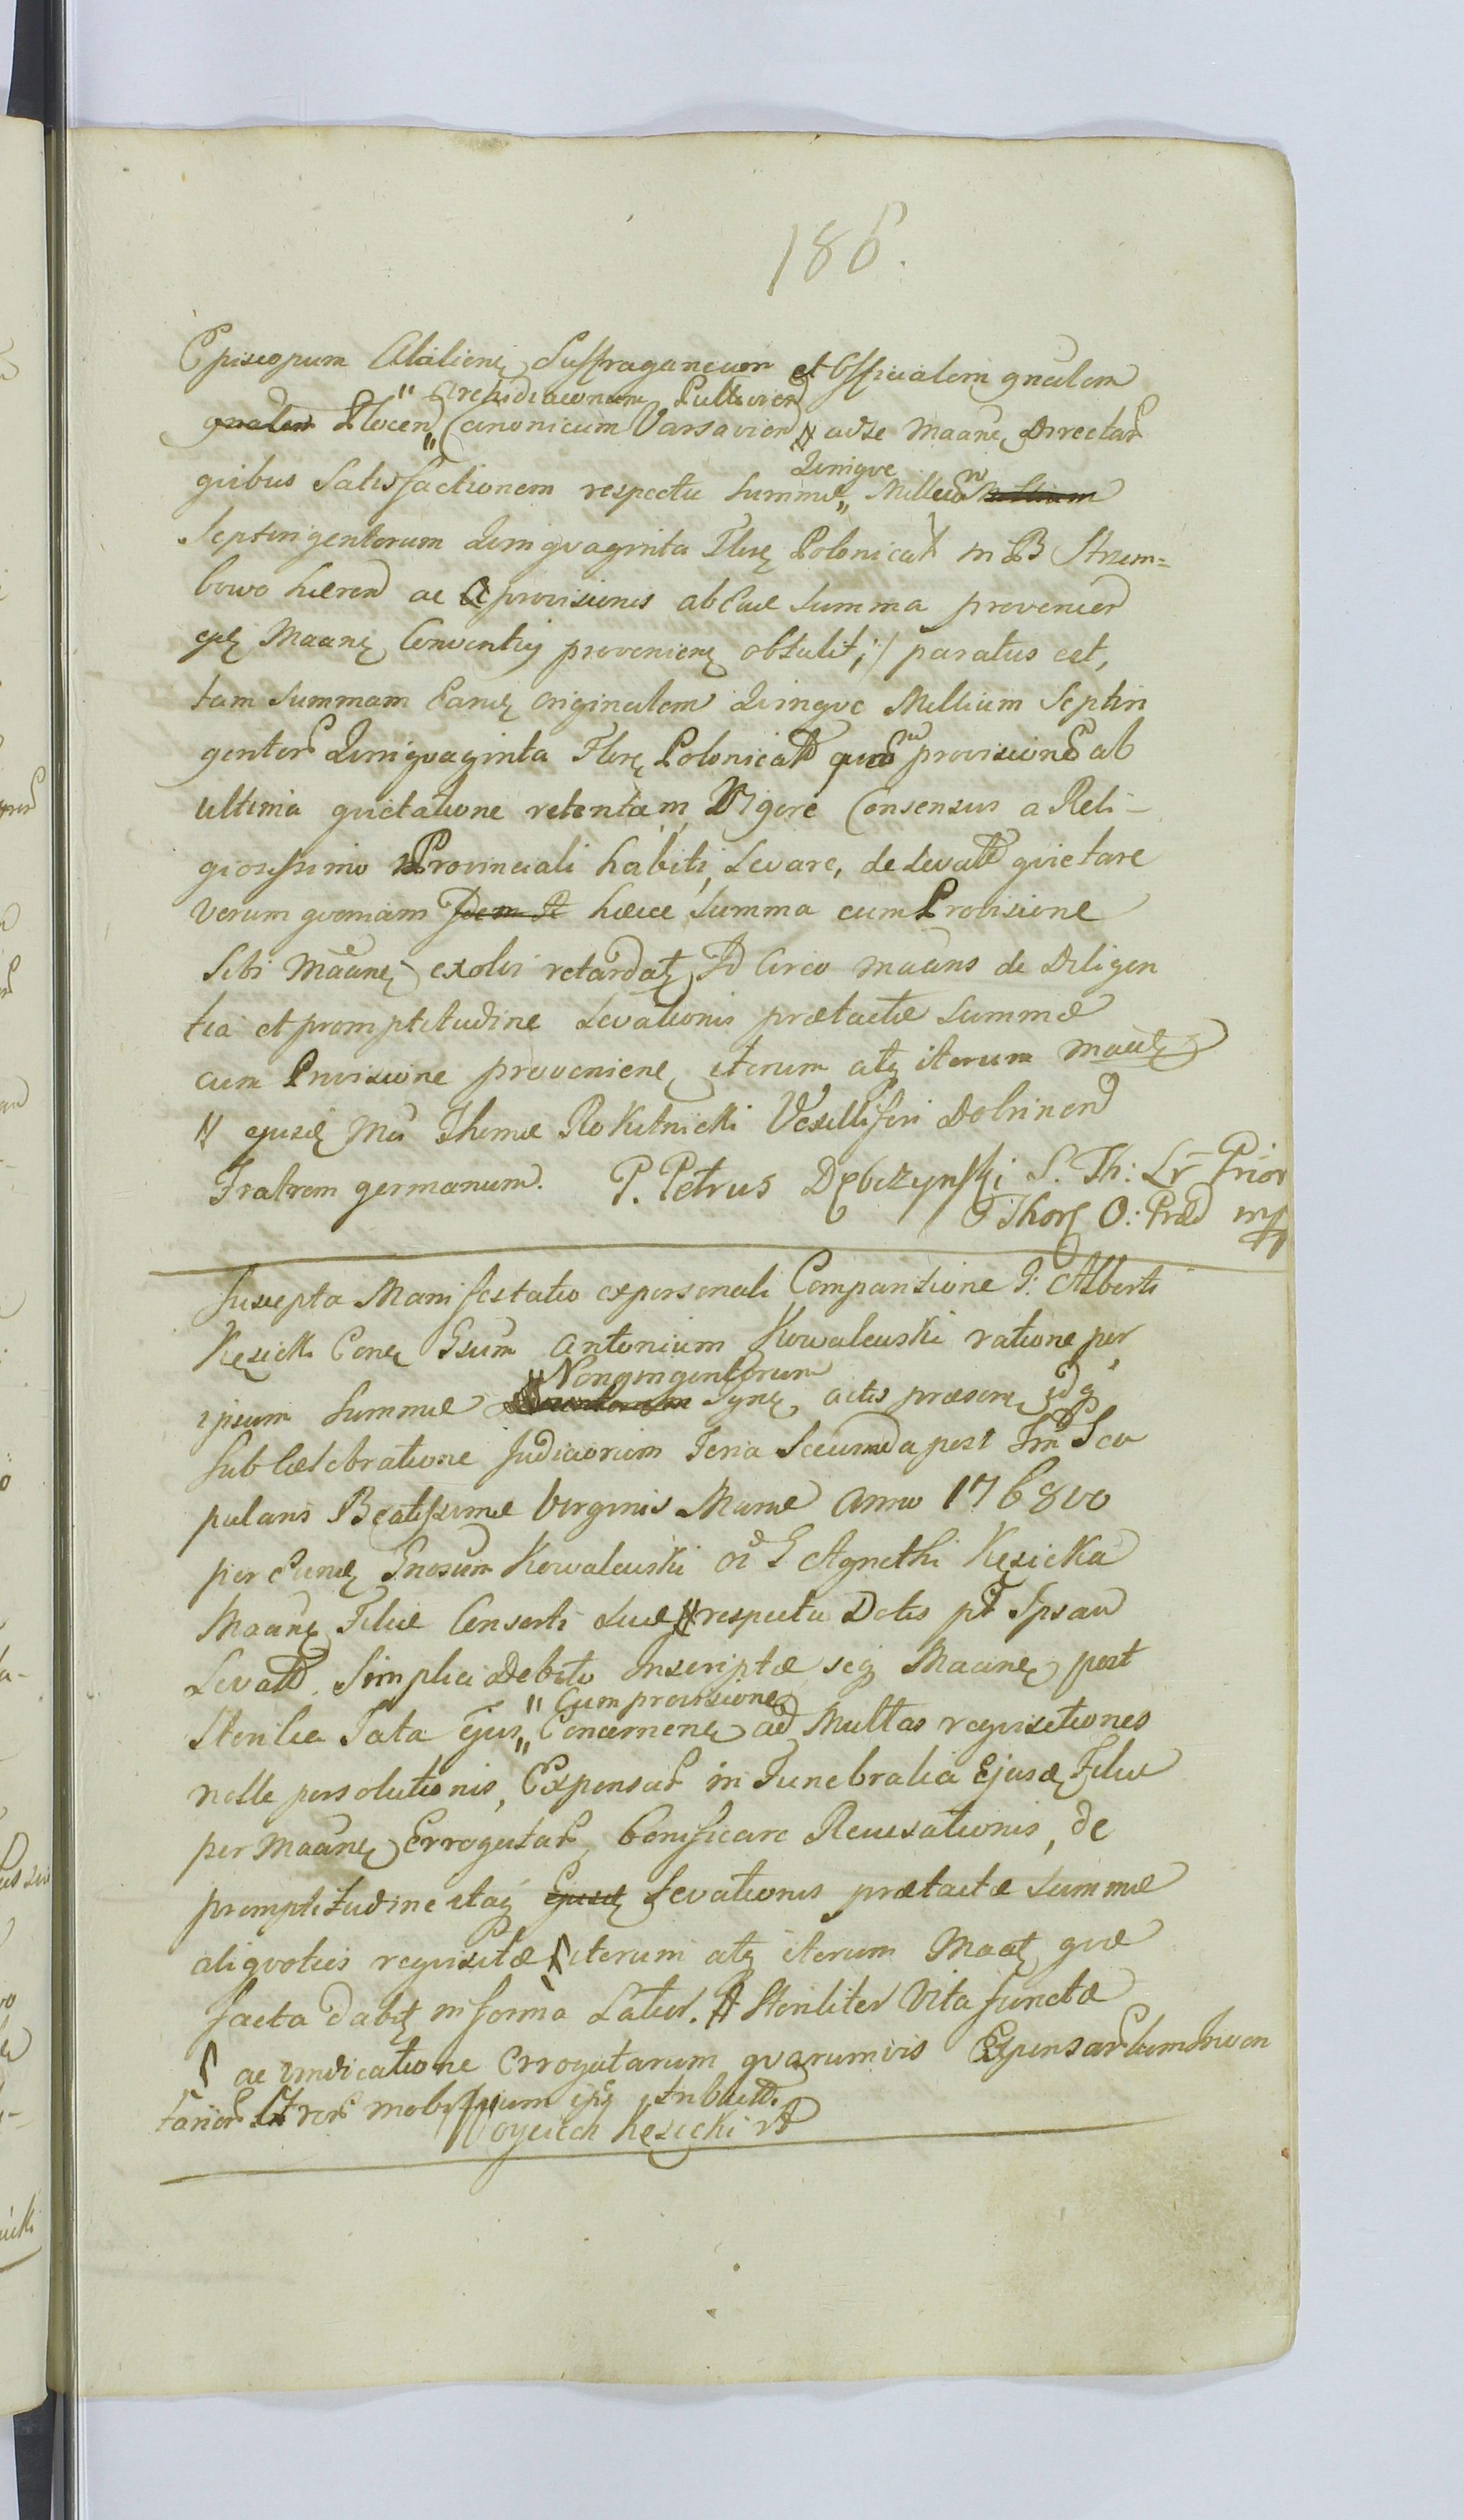 186.
Episcopum Alaliens Suffraganeum et Officialem gnalem
" Archidiaconum Pultovien
gnalem Plocen „ Canonicum Varsavien # ad se Maane Directar
Quinque
quibus Satisfactionem respectu Summæ „ Millium Millium
Septingentorum Quinquaginta Flor Polonical in B Strem=
bowo hæren ac a provisionis ab Eae Summa provenien
ejus Maane Conventus proveniene obtulit; /paratus est,
tam Summam Eandem originalem Quinque Millium Septin
gentor Quinquaginta Flor Polonical quam provisione ab
ultima quietatione retentam, Vigore Consensus a Reli-
giosissimo Provinciali habiti, Levare, de Levatt quietare
Verum quoniam Idem hæcce Summa cum Provisione
Sibi Maane exolvi retardat, Id Circo Maans de Diligen
tia et promptitudine Levationis prætactæ Summæ
cum Provisione proveniene iterum atq iterum
# ejusd Thomæ Rokitnicki Vexilliferi Dobrinen
Fratrem germanum. P. Petrus Dębczynski S. Th: Lr Prior
Thor O: Præd mp
Suscepta Manifestatio ex personali Comparitione G. Alberti
Kęsicki Cone Gsum Antonium Kowalewski ratione per
" Nonningentorum
ipsum Summæ Synę actis præsent idq
Sub Cælebratione Judiciorum Feria Secunda post Fm Sca
pularis Beatissimæ Virginis Mariæ Anno 1768vo
per Eund Gnosum Kowalewski olim G Agnethi Kęsicka
Maane Filiæ Consorti Suæ # respectu Dotis pr Ipsam
Levatt. Simplici Debito inscriptæ seq Maane post
" Cum provisione
Sterilia Fata Ejus „ Concernene ad Multas requisitiones
nolle persolutionis, Expensar in Funebralia Ejusd Filiæ
per Maane Errogatar, bonificare Recusationis, de
promptitudine itaq Ejusd Levationis prætactæ Summæ
aliquoties requisitæ ſ iterum atq iterum Maat quæ
facta dabit in forma Latiori. # Steriliter Vita functæ
ſ ac vindicatione Errogatarum quarumvis Expensar tum Inven
tarior rer mobilium
Woyciech Kęsicki